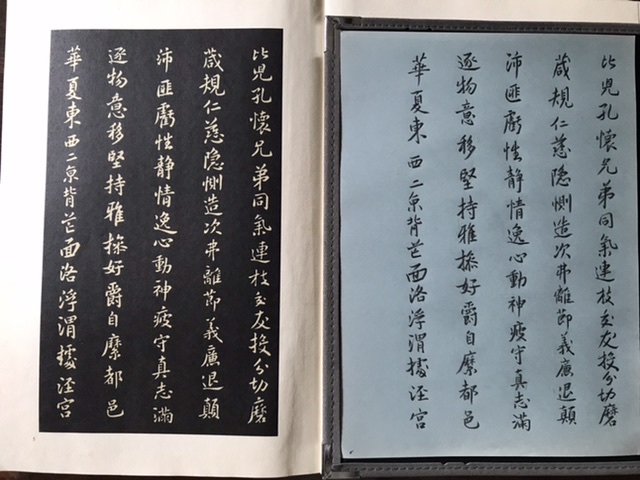 比兒孔懷兄弟同氣連枝交友投分切磨
葴規仁慈隐惻造次弗離節義廉退顛
沛匪虧性静情逸心動神疲守真志滿
逐物意移堅持雅操好爵自縻都邑
華夏東西二京背芒面洛浮渭據涇宫
比兒孔懷兄弟同氣連枝交友投分切磨
葴規仁慈隐惻造次弗離節義廉退顛
沛匪虧性静情逸心動神疲守真志滿
逐物意移堅持雅操好爵自縻都邑
華夏東西二京背芒面洛浮渭據涇宫